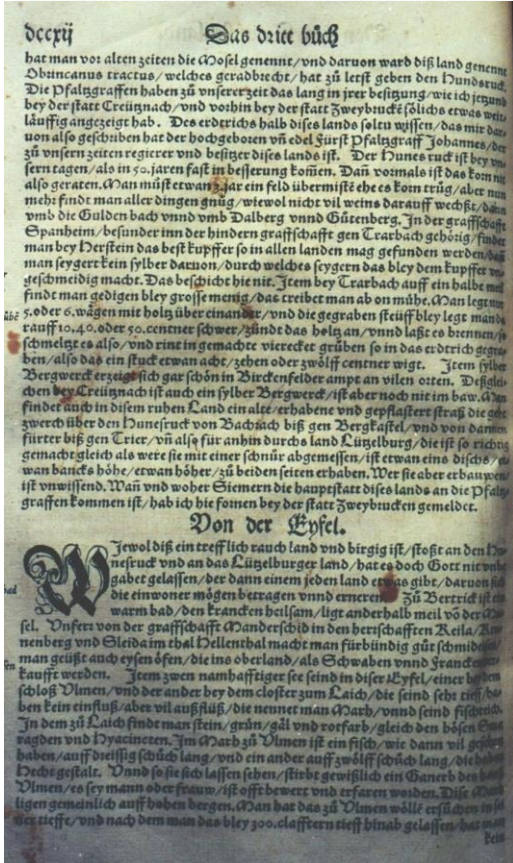 dccxij Das dritt bůch
hat man vor alten zeiten die Mosel genennt/vnd daruon ward diß land genennt
Obrincanus tractus/welches geradbrecht/hat zů letst geben den Hundsruck.
Die Pfaltzgraffen haben zů vnserer zeit das lang in jrer besitzung/wie ich jetzund
bey der statt Creütznach/vnd vorhin bey der statt Zweybruck sölichs etwas weit
läuffig angezeigt hab. Des erdtrichs halb dises lands soltu wissen/das mir dar-
uon also geschriben hat der hochgeboren vñ edel Fürst Pfaltzgraff Johannes/der
zů vnsern zeiten regierer vnd besitzer dises lands ist. Der Hunes ruck ist bey vn-
sern tagen/als in 50. jaren fast in besserung kom̃en. Dañ vormals ist das korn nit
also geraten. Man můst etwan jar ein feld übermiste ehe es korn trůg/aber nun
mehr findt man aller dingen gnůg/wiewol nicht vil weins darauff wechßt/dann
vmb die Gulden bach vnnd vmb Dalberg vnnd Gůtenberg. In der graffschafft
Spanheim/besunder inn der hindern graffschafft gen Trarbach gehörig/findet
man bey Herstein das best kupffer so in allen landen mag gefunden werden/dañ
man seygert kein sylber daruon/durch welches seygern das bley dem kupffer vn-
geschmeidig macht. Das beschicht hie nit. Item bey Trarbach auff ein halbe meil
findt man gedigen bley grosse menig/das treibet man ab on mühe. Man legt nur
5. oder 6. wägen mit holtz über einander/vnd die gegraben steüff bley legt man
rauff 10. 40. oder 50. centner schwer/zündt das holtz an/vnnd laßt es brennen/so
schmeltzt es also/vnd rint in gemachte vierecket grüben so in das erdtrich gegra-
ben/also das ein stuck etwan acht/zehen oder zwölff centner wigt. Item sylber
Bergwerck erzeigt sich gar schön in Birckenfelder ampt an vilen orten. Deßglei-
chen bey Creütznach ist auch ein sylber Bergwerck/ist aber noch nit im baw. Man
findet auch in disem ruhen Land ein alte/erhabene vnd gepflastert straß die geht
zwerch über den Hunesruck von Bachach biß gen Bergkastel/vnd von dannen
fürter biß gen Trier/vñ also für anhin durchs land Lützelburg/die ist so richtig
gemacht gleich als were sie mit einer schnůr abgemessen/ist etwan eins dischs/et-
wan bancks höhe/etwan höher/zů beiden seiten erhaben. Wer sie aber erbauwen/
ist vnwissend. Wañ vnd woher Siemern die hauptstatt dises lands an die Pfaltz
graffen kommen ist/hab ich hie fornen bey der statt Zweybrucken gemeldet.
Von der Eyfel.
Wiewol diß ein trefflich rauch land vnd birgig ist/stoßt an den Hu-
nesruck vnd an das Lützelburger land/hat es doch Gott nit vnbe-
gabet gelassen/der dann einem jeden land etwas gibt/daruon sich
die einwoner mögen betragen vnnd erneren. Zů Bertrick ist ein
warm bad/den krancken heilsam/ligt anderhalb meil võ der Mo-
sel. Vnfert von der graffschafft Manderschid in den hertschafften Keila/Kro-
nenberg vnd Sleida im thal Hellenthal macht man fürbündig gůt schmideisen/
man geüßt auch eysen öfen/die ins oberland/als Schwaben vnnd Francken ver-
kaufft werden. Item zwen namhafftiger see seind in diser Eyfel/einer bey dem
schloß Vlmen/vnd der ander bey dem closter zum Laich/die seind sehr tieff/ha-
ben kein einfluß/aber vil außflüß/die nennet man Marh/vnnd seind fischreich.
In dem zů Laich findt man stein/grün/gäl vnd rotfarb/gleich den bösen Sma-
ragden vnd Hyacincten. Im Marh zů Vlmen ist ein fisch/wie dann vil gesehen
haben/auff dreissig schůch lang/vnd ein ander auff zwölff schůch lang/die haben
Hecht gestalt. Vnnd so sie sich lassen sehen/stirbt gewißlich ein Ganerb des hauß
Vlmen/es sey mann oder frauw/ist offt bewert vnd erfaren worden. Dise Marh
ligen gemeinlich auff hohen bergen. Man hat das zů Vlmen wölle ersůchen in sei
ner tieffe/vnd nach dem man das bley 300. clafftern tieff hinab gelassen/hat man
kein